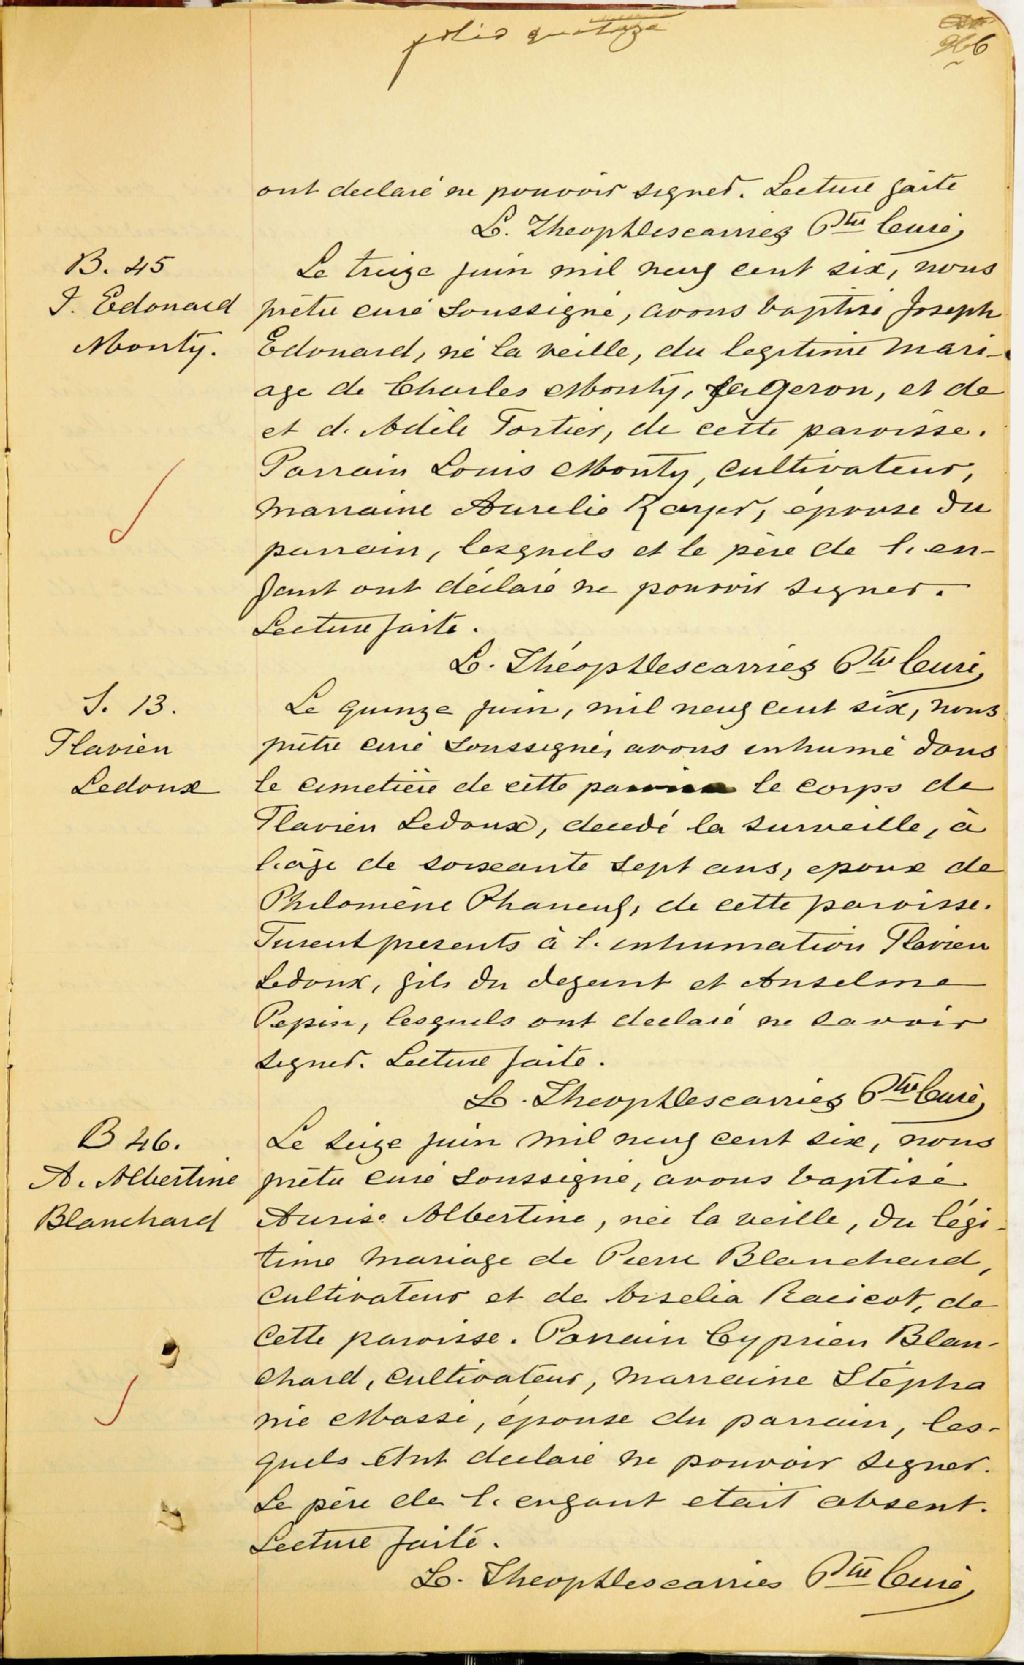 folio quatorze
ont declaré ne pouvoir signer. Lecture faite
L. Theop Descarries Ptre Curé
B. 45
J. Edouard
Monty.
Le treize juin mil neuf cent six, nous
prêtre curé soussigné, avons baptisé Joseph
Edouard, né la veille, du legitime mari-
age de Charles Monty, forgeron, et de
et d. Adèle Fortier, de cette paroisse.
Parrain Louis Monty, cultivateur,
marraine Aurelie, épouse du
parrain, lesquels et le père de l. en-
fant ont déclaré ne pouvoir signer.
Lecture faite.
L. Théop Descarries Ptre Curé
S. 13.
Flavien
Ledoux
Le quinze juin, mil neuf cent six, nous
prêtre curé soussigné, avons inhumé dans
le cimetière de cette paroisse le corps de
Flavien Ledoux, decedé la surveille, à
l. âge de soixante sept ans, epoux de
Philomène Phaneuf, de cette paroisse.
Furent presents à l. inhumation Flavien
Ledoux, fils du defunt et Anselme
Pepin, lesquels ont declaré ne savoir
signer. Lecture faite.
L. Theop Descarries Ptre Curé
B 46.
A. Albertine
Blanchard
Le seize juin mil neuf cent six, nous
prêtre curé soussigné, avons baptisé
Aurise Albertine, née la veille, du légi-
time mariage de Pierre Blanchard,
cultivateur et de Rselia Racicot, de
cette paroisse. Parrain Cyprien Blan-
chard, cultivateur, marraine Stépha
nie Massé, épouse du parrain, les-
quels ont declaré ne pouvoir signer.
Le père de l. enfant etait absent.
Lecture faite.
L. Theop Descarries Ptre Curé